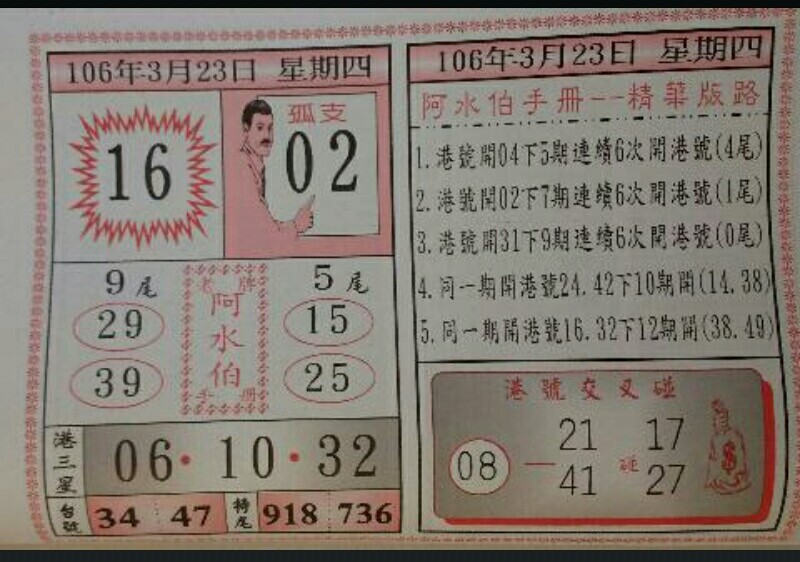 106年3月23日 星期四
16
孤支
02
9尾
29
39
老牌
阿水伯
手冊
5尾
15
25
港三星
06·10·32
台號
34 47
特尾
918 736
106年3月23日 星期四
阿水伯手冊--精華版路
1.港號開04下5期連續6次開港號(4尾)
2.港號開02下7期連續6次開港號(1尾)
3.港號開31下9期連續6次開港號(0尾)
4.同一期開港號24.42下10期開(14.38)
5.同一期開港號16.32下12期開(38.49)
港號交叉碰
08
21
41
碰
17
27
$